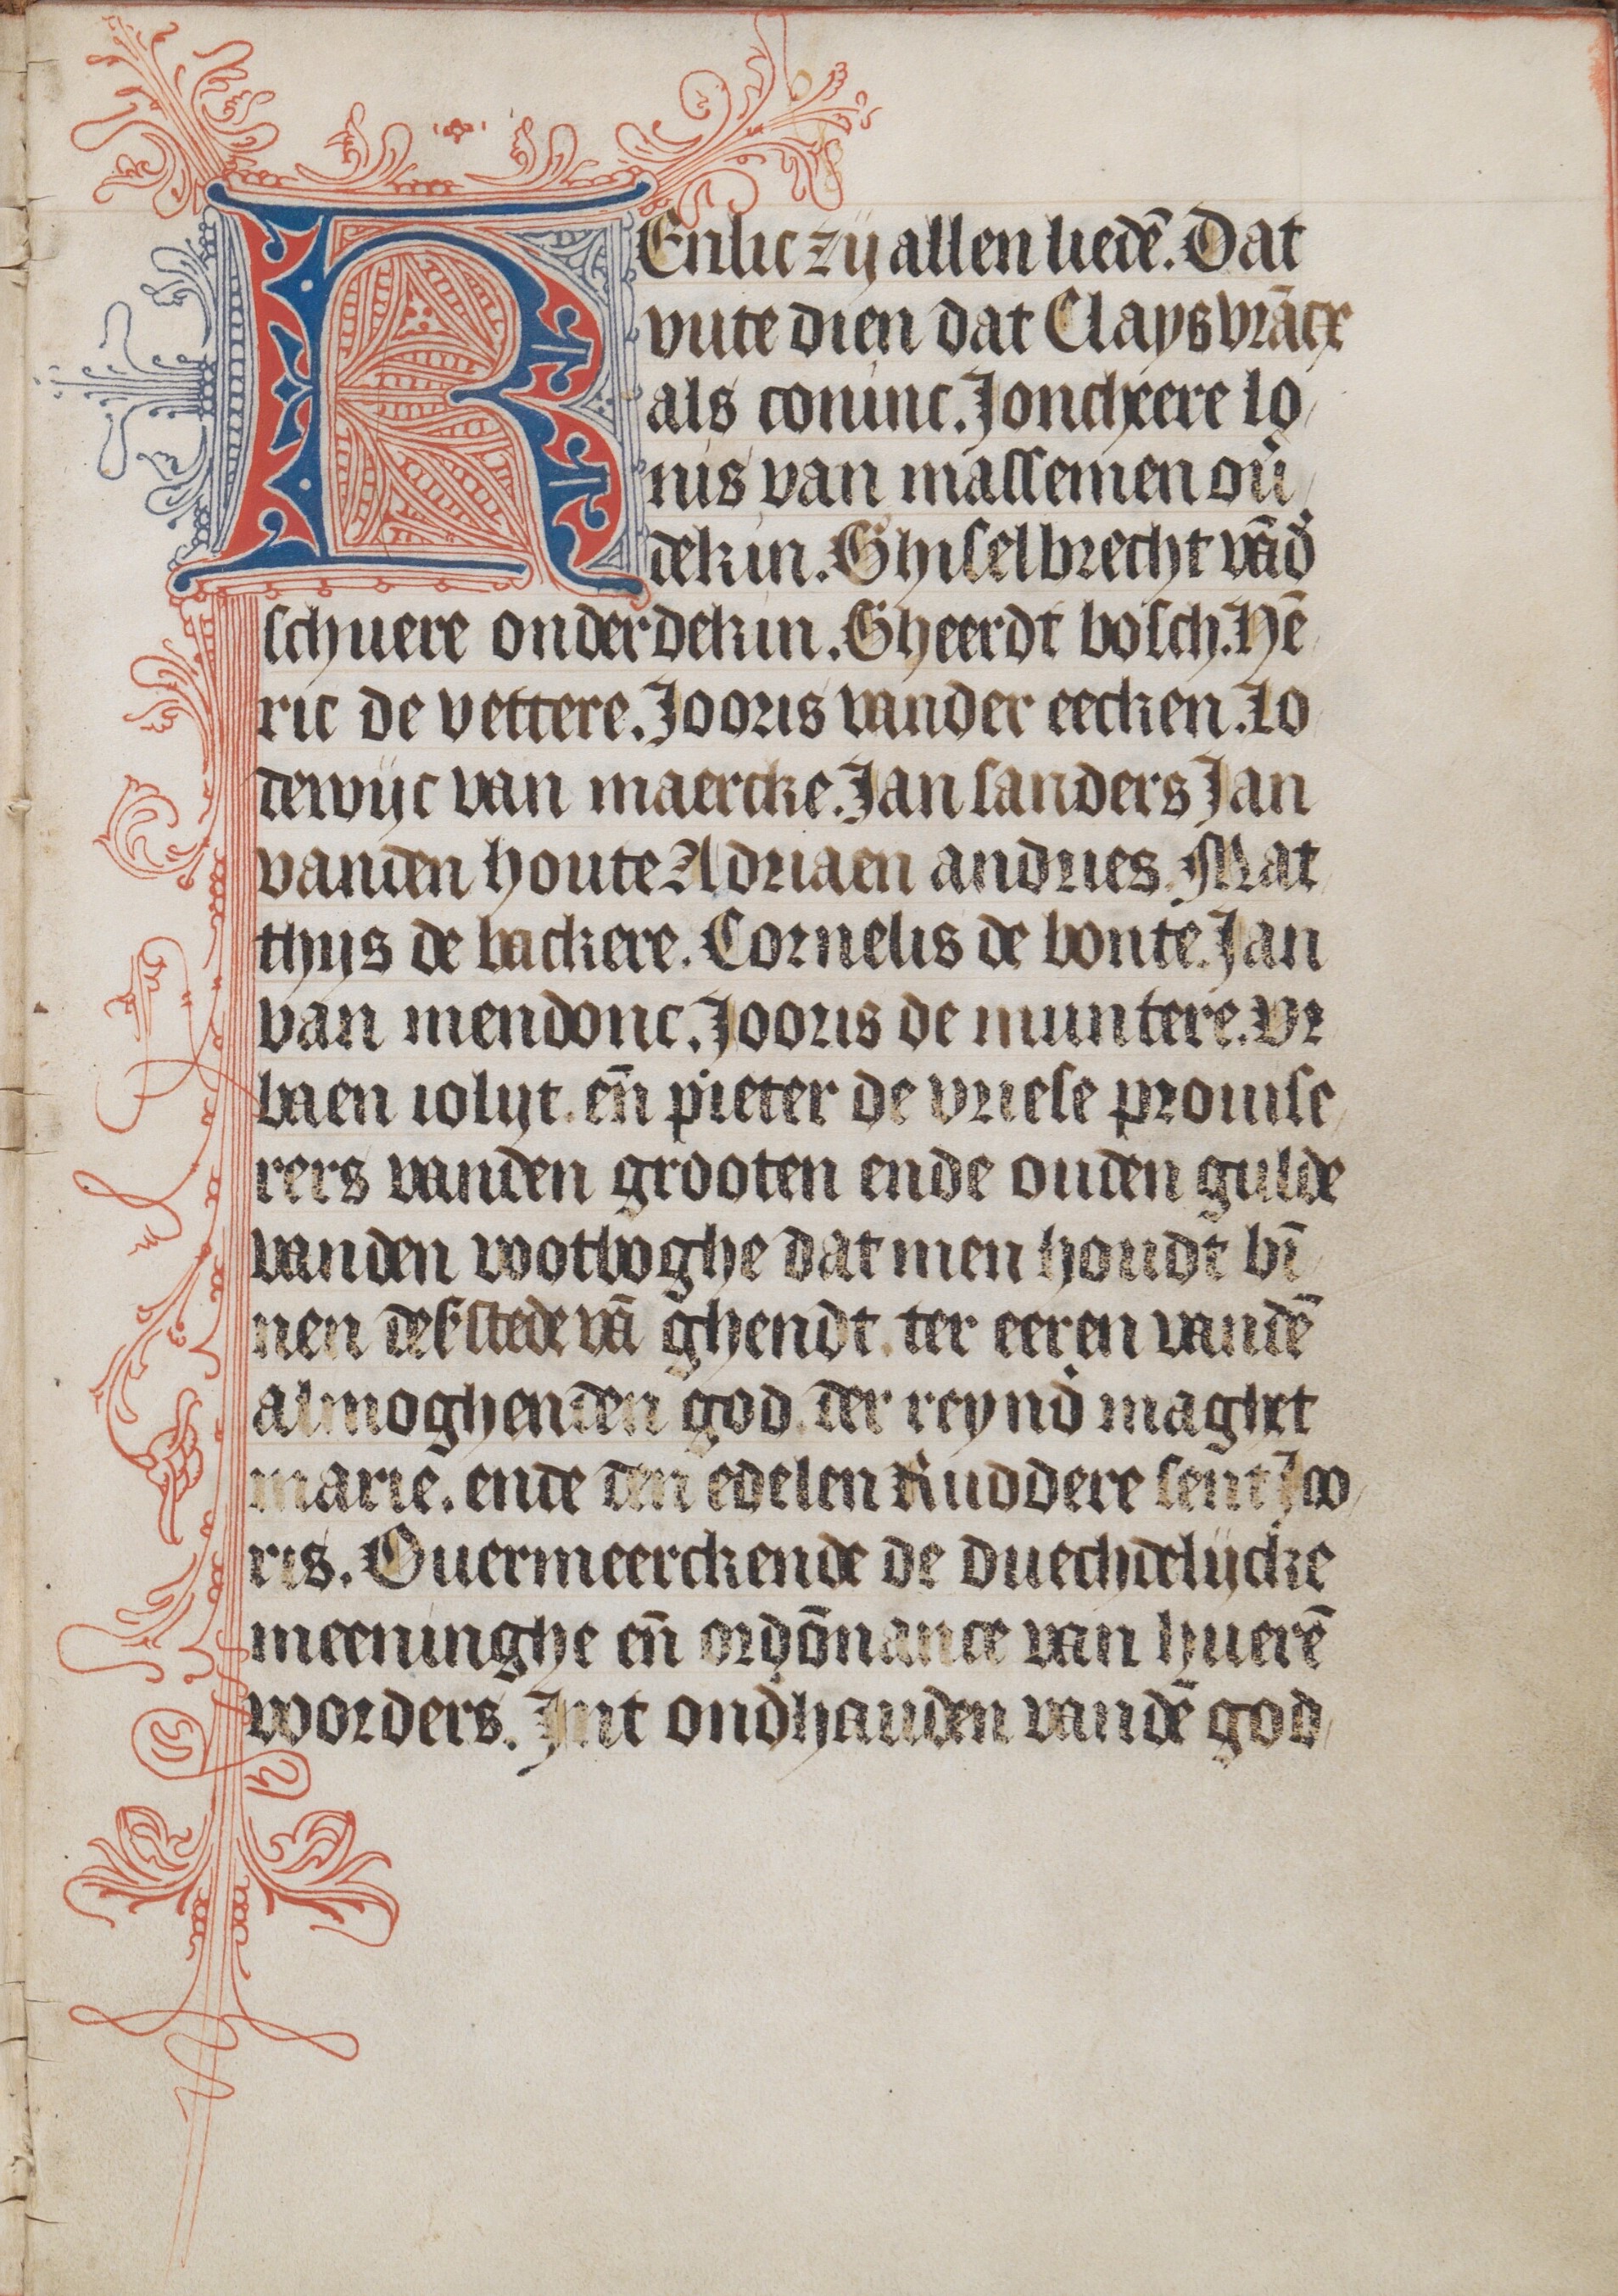 REnlic zij allen liedē. Dat
vute dien dat Clays vrācx
als coninc. Jonchеere lo
nis van massemen ou̾
dekin. Ghiselbrecht vād̾
schuere onderdekin. Gheerdt bosch. Hē
ric de vettere. Jooris vander eecken. Lo
dewijc van maercke. Jan sanders Jan
vanden houte Adriaen andries. Mat
thijs de backere. Cornelis de bonte. Jan
van mendonc. Jooris de muntere. Vr
baen iolijt. eñ pieter de vriese prouise
rers vanden grooten ende ouden gulde
vanden voetboghe dat men houdt bī
nen deser stede vā ghendt. ter eeren vandē
almoghenden god. der reynd̾ maghet
marie. ende den edelen Ruddere sent Joo
ris. Ouermeerckende de duechdelijcke
meeninghe eñ ordōnance van huerē
voorders. Int ond̾hauden vandē god